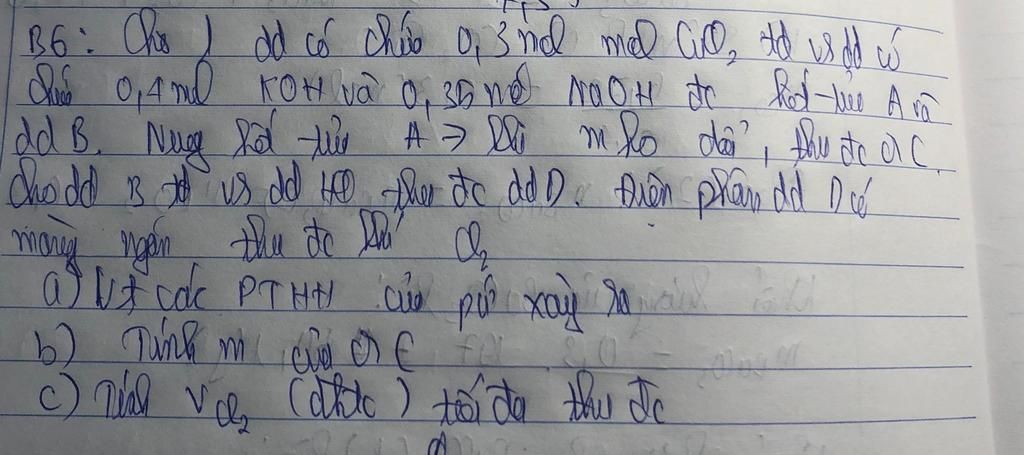 B6: Cho 1 dd có chứa 0,3 mol CuCl₂ td vs dd có
chứa 0,4 mol KOH và 0,35 mol NaOH đc kết tủa A và
dd B. Nung kết tủa A → khi m ko đổi, thu đc CR C
Cho dd B td vs dd HCl thu đc dd D. Điện phân dd D có
màng ngăn thu đc khí Cl₂
a) Vt các PTHH của pứ xảy ra
b) Tính m của CR C
c) Tính V Cl₂ (đktc) tối đa thu đc